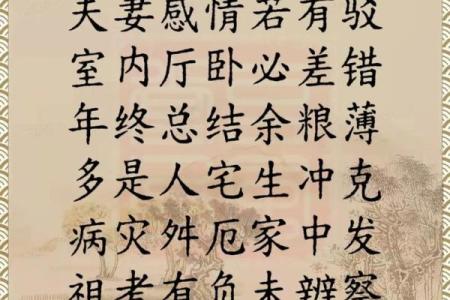 夫妻感情若有驳
室内厅卧必差错
年终总结余粮薄
多是人宅生冲克
病灾舛厄家中发
祖考有负未辨察